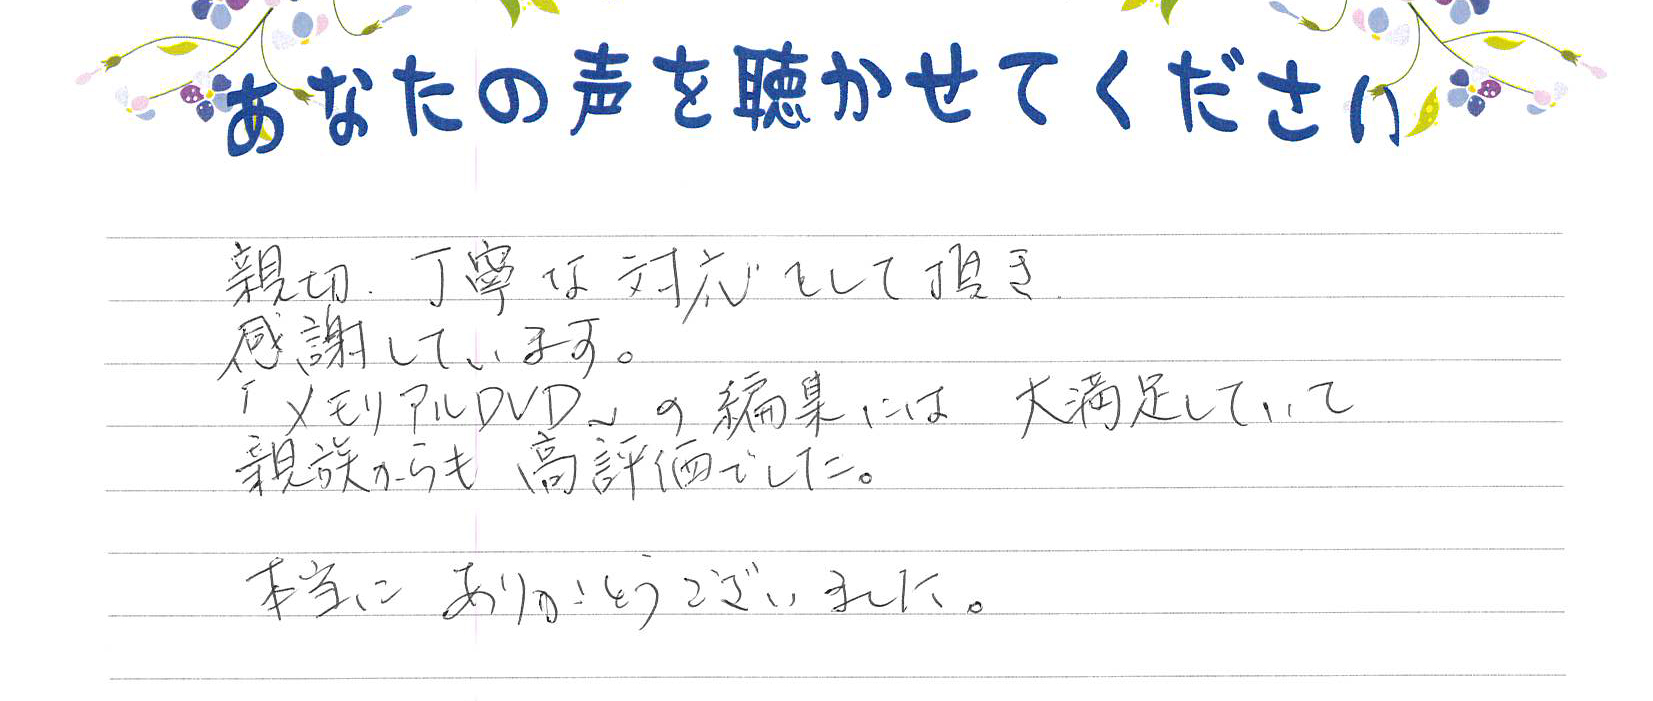 あなたの声を聴かせてください
親切、丁寧な対応をして頂き、
感謝しています。
「メモリアルDVD」の編集には大満足していて
親族からも高評価でした。
本当にありがとうございました。